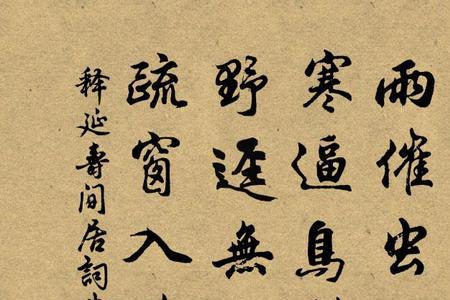 雨催虫
寒逼鳥
野逕無
疏窗入
释延壽间居詞